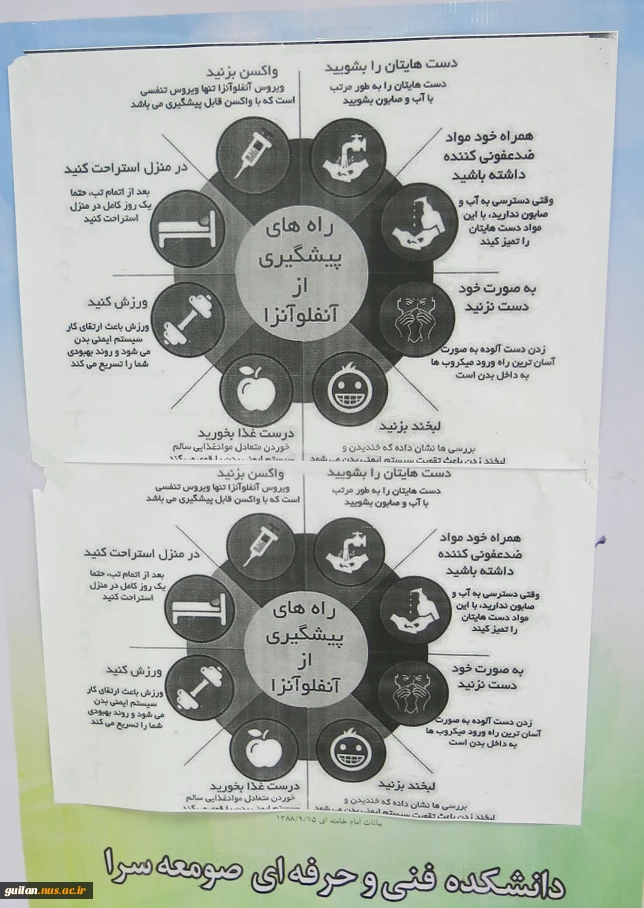 دست هایتان را بشویید
دست هایتان را به طور مرتب
با آب و صابون بشویید
واکسن بزنید
ویروس آنفلوآنزا تنها ویروس تنفسی
است که با واکسن قابل پیشگیری می باشد
همراه خود مواد
ضدعفونی کننده
داشته باشید
وقتی دسترسی به آب و
صابون ندارید، با این
مواد دست هایتان
را تمیز کنید
در منزل استراحت کنید
بعد از اتمام تب، حتما
یک روز کامل در منزل
استراحت کنید
راه های
پیشگیری
از
آنفلوآنزا
به صورت خود
دست نزنید
زدن دست آلوده به صورت
آسان ترین راه ورود میکروب ها
به داخل بدن است
ورزش کنید
ورزش باعث ارتقای کار
سیستم ایمنی بدن
می شود و روند بهبودی
شما را تسریع می کند
لبخند بزنید
بررسی ها نشان داده که خندیدن و
لبخند زدن باعث تقویت سیستم ایمنی بدن می شود
درست غذا بخورید
خوردن متعادل موادغذایی سالم
سیستم ایمنی بدن را قوی می کند
دست هایتان را بشویید
دست هایتان را به طور مرتب
با آب و صابون بشویید
واکسن بزنید
ویروس آنفلوآنزا تنها ویروس تنفسی
است که با واکسن قابل پیشگیری می باشد
همراه خود مواد
ضدعفونی کننده
داشته باشید
وقتی دسترسی به آب و
صابون ندارید، با این
مواد دست هایتان
را تمیز کنید
در منزل استراحت کنید
بعد از اتمام تب، حتما
یک روز کامل در منزل
استراحت کنید
راه های
پیشگیری
از
آنفلوآنزا
به صورت خود
دست نزنید
زدن دست آلوده به صورت
آسان ترین راه ورود میکروب ها
به داخل بدن است
ورزش کنید
ورزش باعث ارتقای کار
سیستم ایمنی بدن
می شود و روند بهبودی
شما را تسریع می کند
لبخند بزنید
بررسی ها نشان داده که خندیدن و
لبخند زدن باعث تقویت سیستم ایمنی بدن می شود
درست غذا بخورید
خوردن متعادل موادغذایی سالم
سیستم ایمنی بدن را قوی می کند
بیانات امام خامنه ای ۱۳۸۸/۹/۱۵
دانشکده فنی و حرفه ای صومعه سرا
guilan.nus.ac.ir